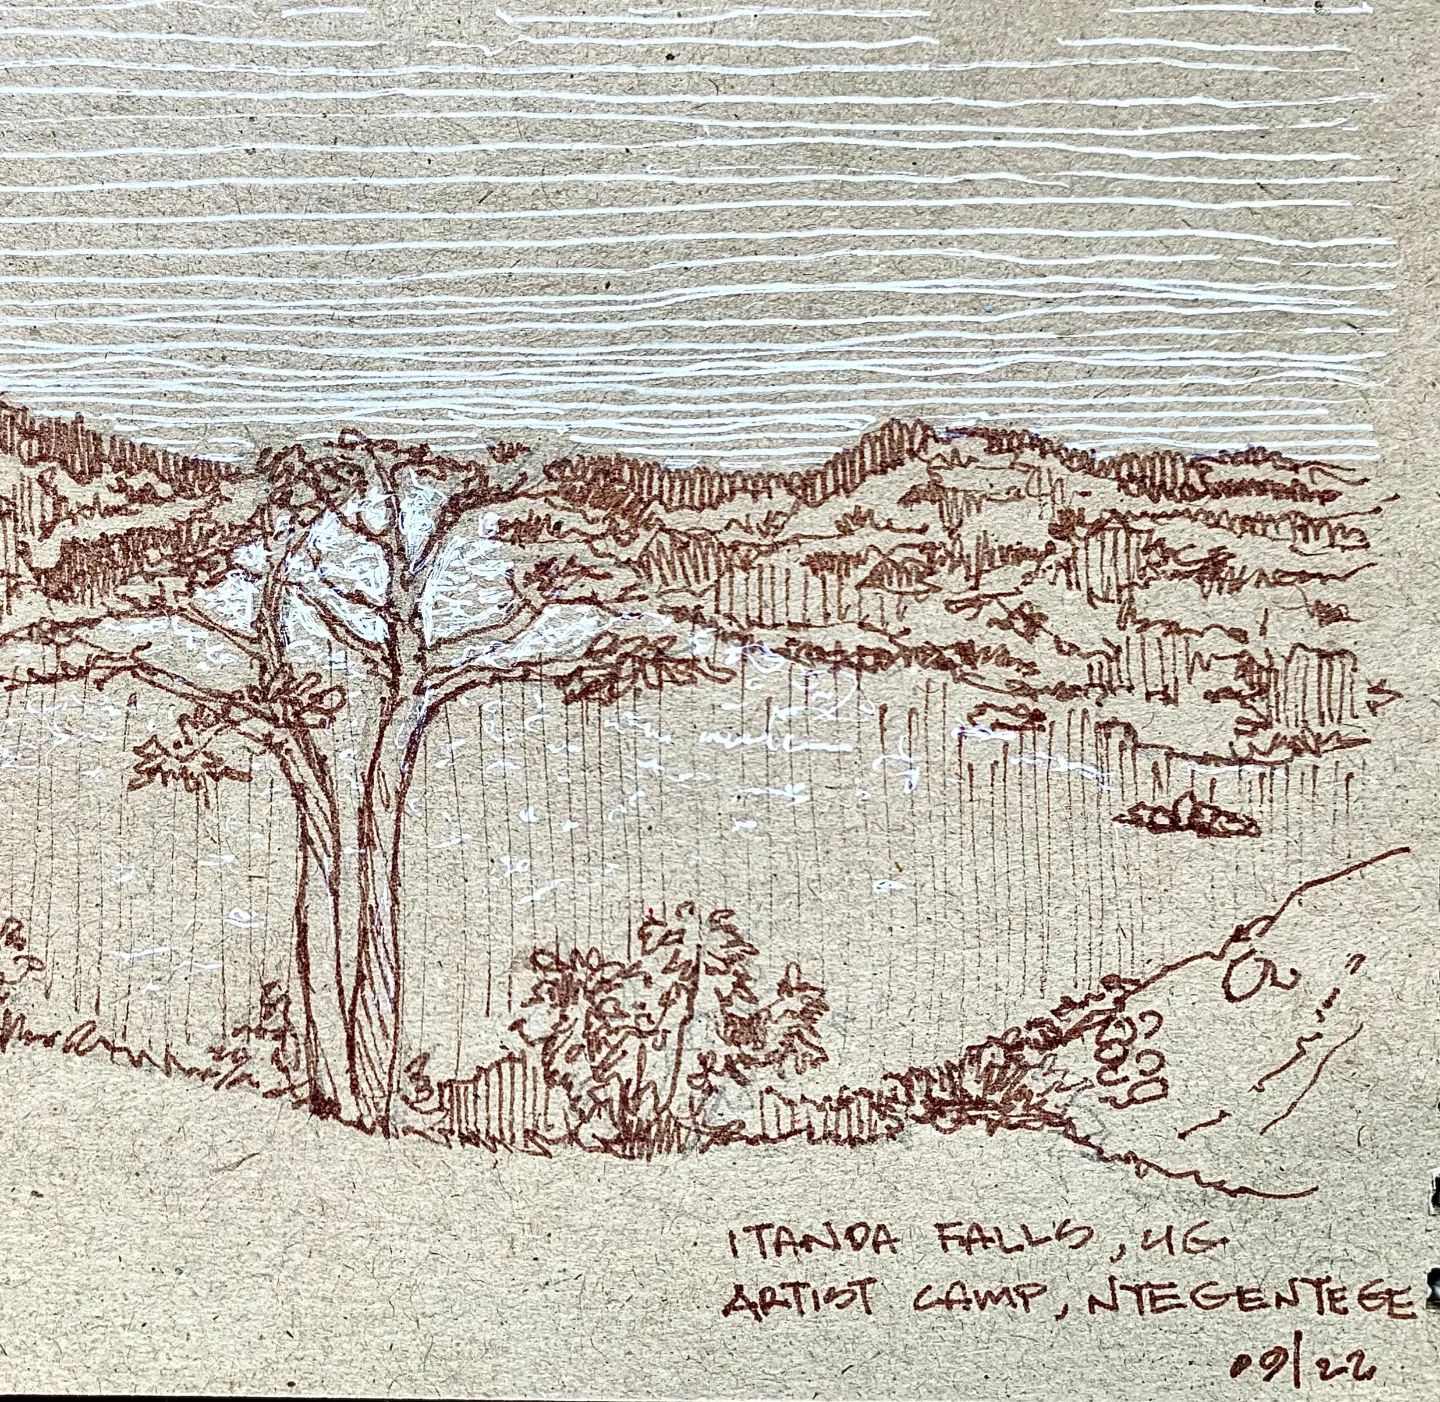 ITANDA FALLS, UG
ARTIST CAMP, NTEGENTEGE
09/22